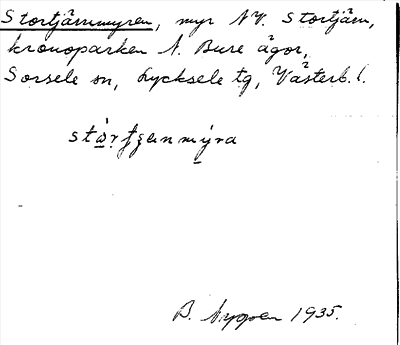 Stortjärnmyren, myr NV. Stortjärn,
kronoparken N. Bure ägor,
Sorsele sn, Lycksele tg, Västerb. l.
B. 1935.